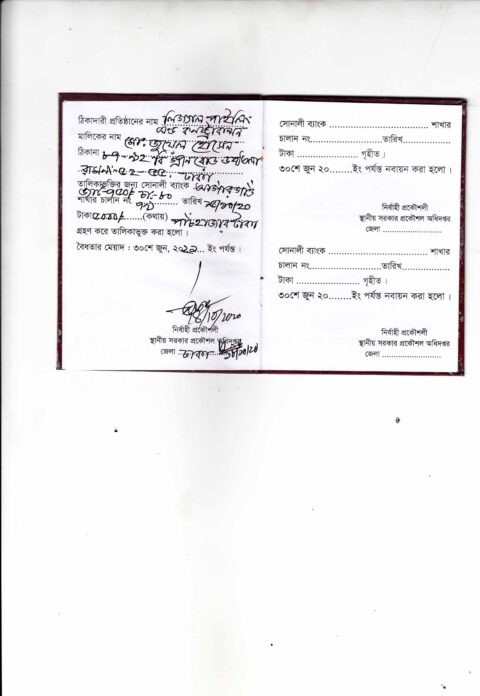 ঠিকাদারী প্রতিষ্ঠানের নাম লিগ্যাল পাইলিং
এন্ড কনস্ট্রাকশন
মালিকের নাম মো: জুয়েল হোসেন
ঠিকানা ৮৭-
ঢাকা
তালিকাভুক্তির জন্য সোনালী ব্যাংক
শাখার চালান নং তারিখ
টাকা ৫০০০/ (কথায়) পাঁচহাজার টাকা
গ্রহণ করে তালিকাভুক্ত করা হলো।
বৈধতার মেয়াদ : ৩০শে জুন, ২০২১... ইং পর্যন্ত।
নির্বাহী প্রকৌশলী
স্থানীয় সরকার প্রকৌশল অধিদপ্তর
জেলা ঢাকা
সোনালী ব্যাংক .................................... শাখার
চালান নং..........................তারিখ................
টাকা ........................ গৃহীত।
৩০শে জুন ২০........ইং পর্যন্ত নবায়ন করা হলো।
নির্বাহী প্রকৌশলী
স্থানীয় সরকার প্রকৌশল অধিদপ্তর
জেলা ........................
সোনালী ব্যাংক .................................... শাখার
চালান নং..........................তারিখ................
টাকা ........................ গৃহীত।
৩০শে জুন ২০........ইং পর্যন্ত নবায়ন করা হলো।
নির্বাহী প্রকৌশলী
স্থানীয় সরকার প্রকৌশল অধিদপ্তর
জেলা ........................